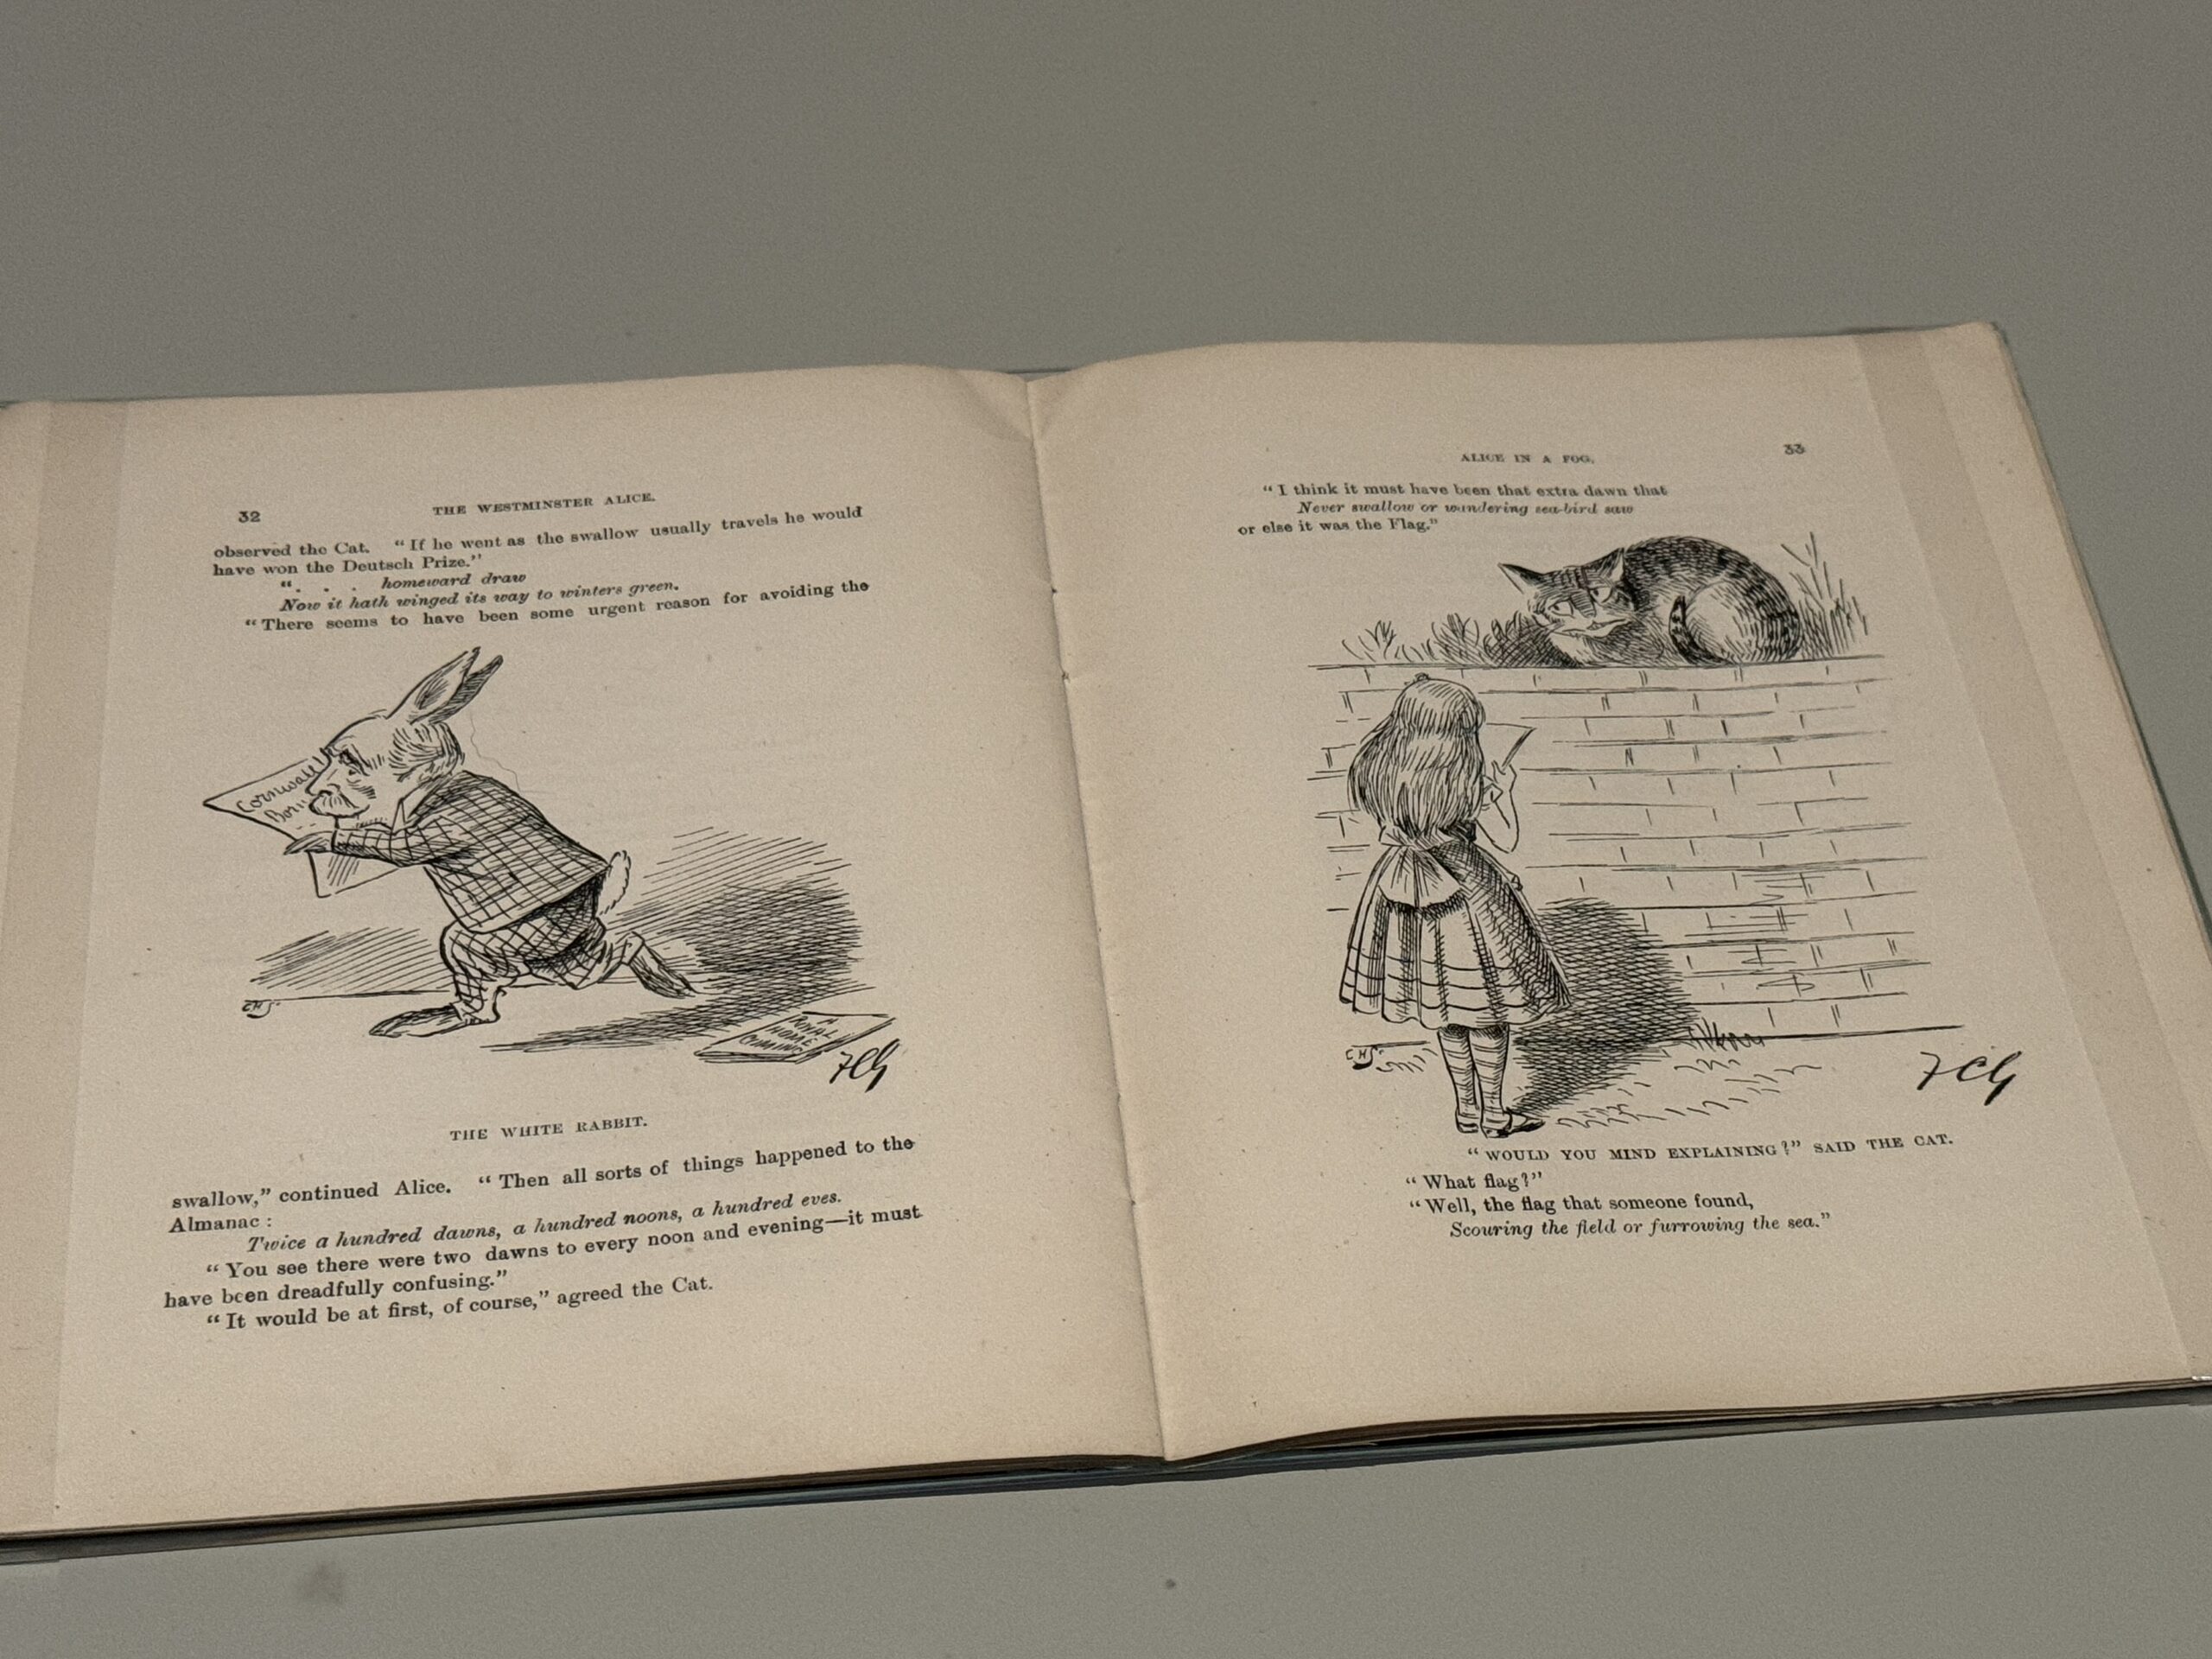 32
THE WESTMINSTER ALICE.
observed the Cat. “If he went as the swallow usually travels he would
have won the Deutsch Prize.”
“ . . . homeward draw
Now it hath winged its way to winters green.
“There seems to have been some urgent reason for avoiding the
Cornwall
Born
CHS.
A
ROYAL
HOME
COMING
FCG
THE WHITE RABBIT.
swallow,” continued Alice. “Then all sorts of things happened to the
Almanac :
Twice a hundred dawns, a hundred noons, a hundred eves.
“You see there were two dawns to every noon and evening—it must
have been dreadfully confusing.”
“It would be at first, of course,” agreed the Cat.
ALICE IN A FOG.
33
“I think it must have been that extra dawn that
Never swallow or wandering sea-bird saw
or else it was the Flag.”
CHS.
FCG
“WOULD YOU MIND EXPLAINING?” SAID THE CAT.
“What flag?”
“Well, the flag that someone found,
Scouring the field or furrowing the sea.”